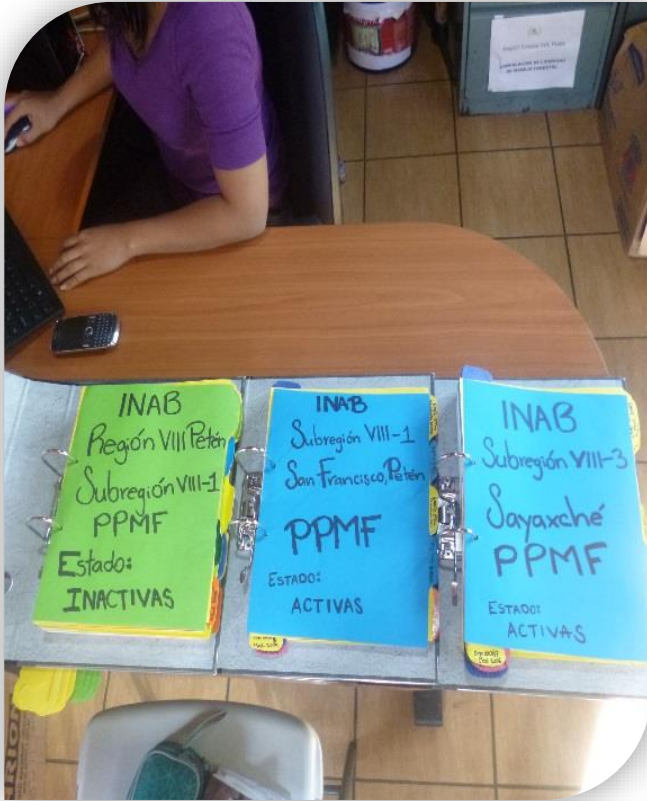 INAB
Región VIII Petén
Subregión VIII-1
PPMF
Estado:
INACTIVAS
INAB
Subregión VIII-1
San Francisco, Petén
PPMF
ESTADO:
ACTIVAS
INAB
Subregión VIII-3
Sayaxché
PPMF
ESTADO:
ACTIVAS
DE MANEJO FORESTAL